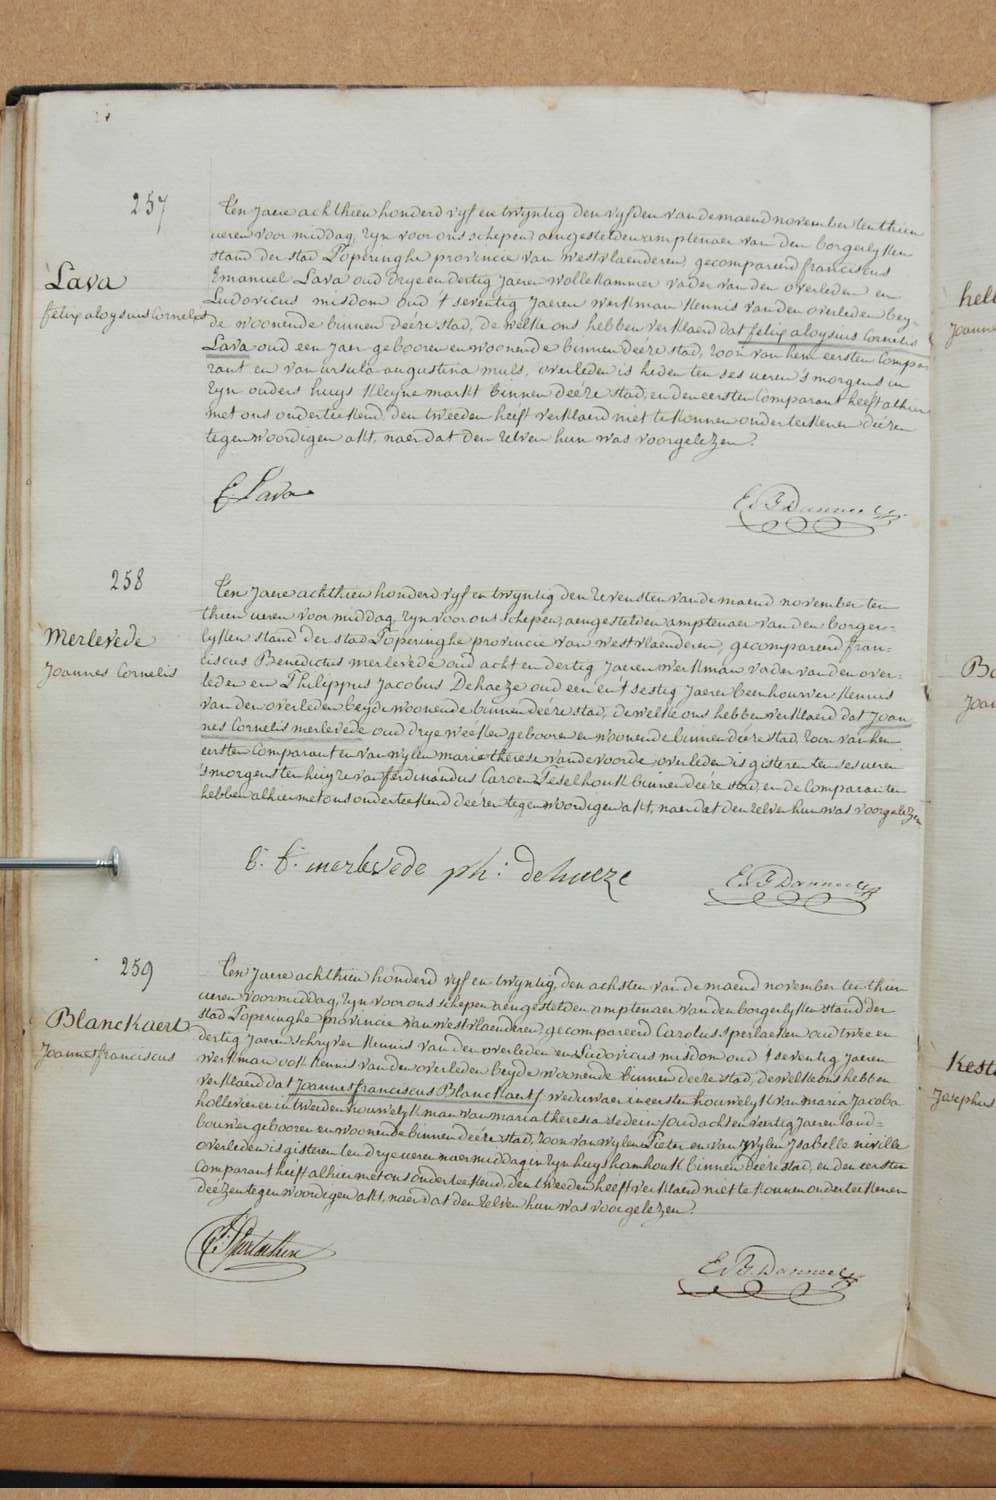 257
Lava
felix aloysius Cornelis
Ten Jaere achthien honderd vyf en twyntig den vyfden van de maend november ten thien
ueren voor middag, zyn voor ons schepen, aengestelden amptenaer van den borgerlyken
stand der stad Poperinghe provincie van westvlaenderen, gecompareerd franciscus
Emanuel Lava oud drye en dertig Jaeren wollekammer vader van den overleden en
Ludovicus misdom oud t seventig Jaeren werkman kennis van den overleden bey-
de woonende binnen deéze stad, de welke ons hebben verklaerd dat felix aloysius Cornelis
Lava oud een Jaer gebooren en woonende binnen deéze stad, zoon van hem eersten Compa-
rant en van ursula augustina muls, overleden is heden ten ses ueren 's morgens in
zyn ouders huys kleyne markt binnen deéze stad, en den eersten Comparant heeft alhier
met ons onderteekend, den tweeden heeft verklaerd niet te konnen onderteekenen deézen
tegenwoordigen akt, naer dat den zelven hun was voorgelezen.
E. Lava
258
Merlevede
Joannes Cornelis
Ten Jaere achthien honderd vyf en twyntig den zevensten van de maend november ten
thien ueren voormiddag, zyn voor ons schepen, aengestelden amptenaer van den borger-
lyken stand der stad Poperinghe provincie van westvlaenderen, gecompareerd fran-
ciscus Benedictus merlevede oud acht en dertig Jaeren werkman vader van den over-
leden en Philippus Jacobus Dehaeze oud een en t sestig Jaeren beenhouwer kennis
van den overleden beyde woonende binnen deéze stad, de welke ons hebben verklaerd dat Joan
nes Cornelis merlevede oud drye weeken gebooren en woonende binnen deéze stad, zoon van hem
eersten Comparant en van wylen marie therese vandevoorde, overleden is gisteren ten ses ueren
's morgens ten huyze van ferdinandus Caroen Peselhoek binnen deéze stad, en de Comparanten
hebben alhier met ons onderteekend deézen tegenwoordigen akt, naer dat den zelven hun was voorgelezen
b. f. merlevede ph: dehaeze
259
Blanckaert
Joannes franciscus
Ten Jaere achthien honderd vyf en twyntig, den achsten van de maend november ten thien
ueren voormiddag, zyn voor ons schepen aengestelden amptenaer van den borgerlyken stand der
stad Poperinghe provincie van westvlaenderen, gecompareerd Carolus Sperlaeken oud twee en
dertig Jaeren schryver kennis van den overleden en Ludovicus misdom oud t seventig Jaeren
werkman ook kennis van den overleden beyde woonende binnen deéze stad, de welke ons hebben
verklaerd dat Joannes franciscus Blanckaert, weduwaer in eersten houwelyk van maria Jacoba
hollevoet en in tweeden houwelyk man van maria theresia oud acht en veertig Jaeren land-
bouwer gebooren en woonende binnen deéze stad, zoon van wylen Pieter en van wylen Isabelle niville
overleden is gisteren ten drye ueren naermiddag in zyn huys hamhoek binnen deéze stad, en den eersten
Comparant heeft alhier met ons onderteekend, den tweeden heeft verklaerd niet te konnen onderteekenen
deézen tegenwoordigen akt, naer dat den zelven hun was voorgelezen.